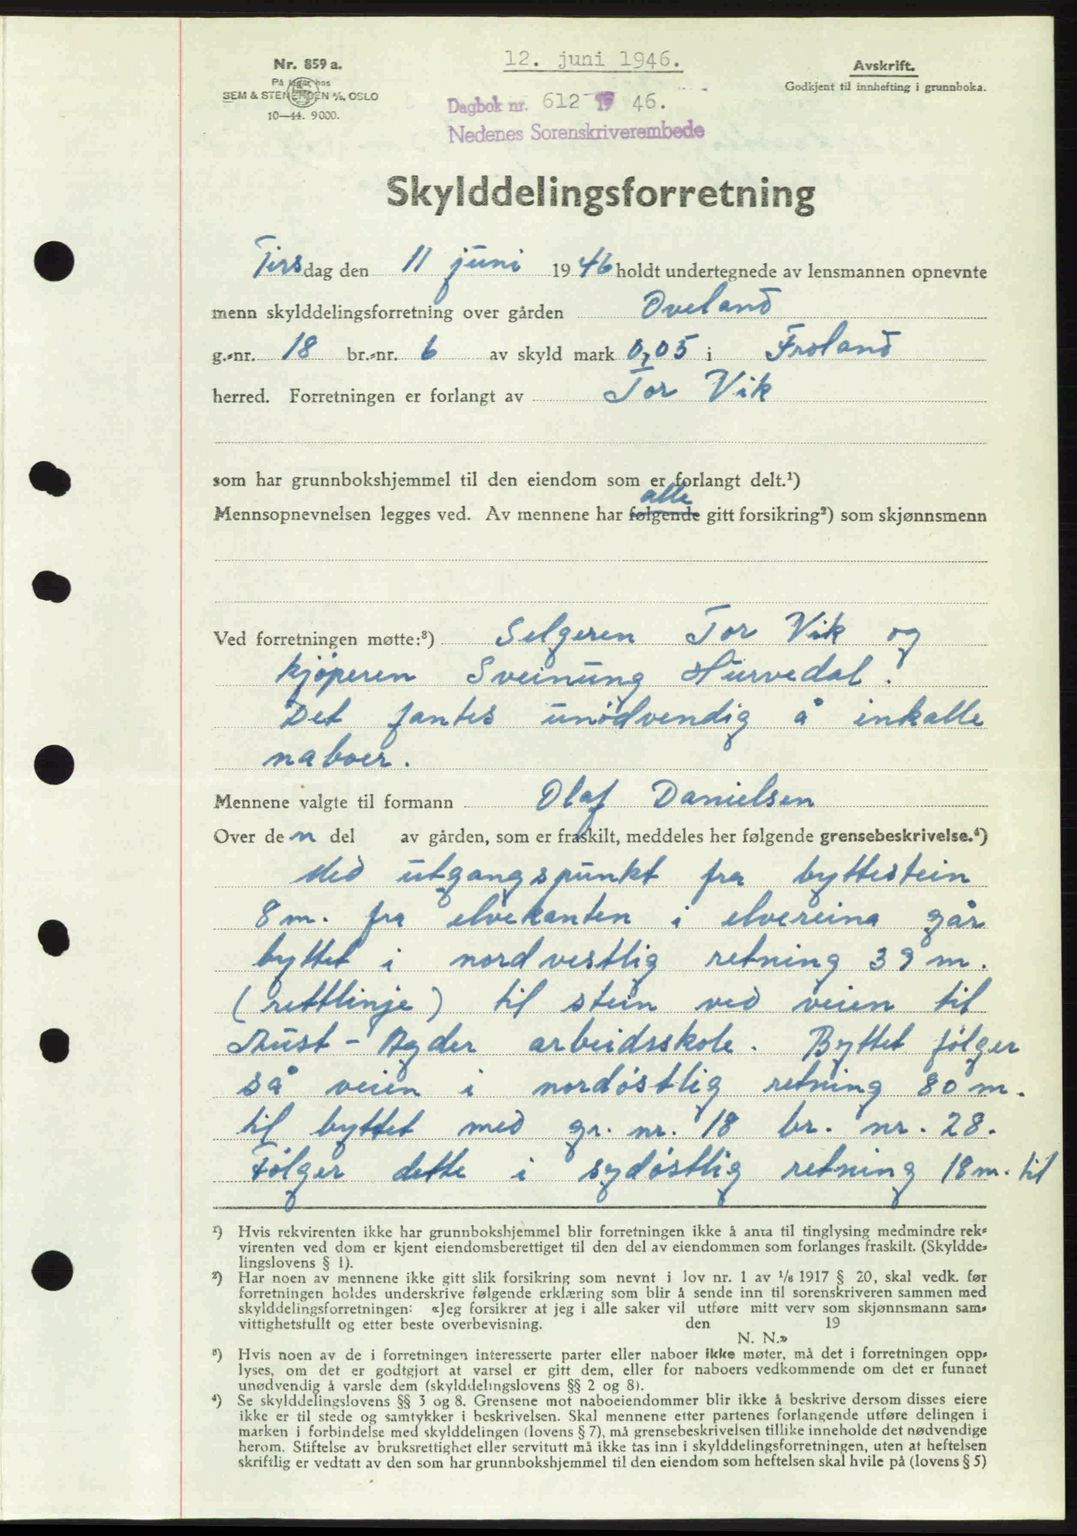 Nr. 859 a.
På lager hos
SEM & STENERSEN A/S, OSLO
10—44. 9000.
12. juni 1946.
Dagbok nr. 612 19 46.
Nedenes Sorenskriverembede
Avskrift.
Godkjent til innhefting i grunnboka.
Skylddelingsforretning
Tirsdag den 11 juni 1946 holdt undertegnede av lensmannen opnevnte
menn skylddelingsforretning over gården Oveland
g.-nr. 18 br.-nr. 6 av skyld mark 0,05 i Froland
herred. Forretningen er forlangt av Tor Vik
som har grunnbokshjemmel til den eiendom som er forlangt delt.¹)
alle
Mennsopnevnelsen legges ved. Av mennene har følgende gitt forsikring²) som skjønnsmenn
Ved forretningen møtte:³) Selgeren Tor Vik og
kjøperen Sveinung Hurvedal.
Det fantes unødvendig å inkalle
naboer.
Mennene valgte til formann Olaf Danielsen
Over den del av gården, som er fraskilt, meddeles her følgende grensebeskrivelse.⁴)
Med utgangspunkt fra byttestein
8 m. fra elvekanten i elvereina går
byttet i nordvestlig retning 39 m.
(rettlinje) til stein ved veien til
Aust-Agder arbeidsskole. Byttet følger
så veien i nordøstlig retning 80 m.
til byttet med gr. nr. 18 br. nr. 28.
Følger dette i sydøstlig retning 18 m. til
¹) Hvis rekvirenten ikke har grunnbokshjemmel blir forretningen ikke å anta til tinglysing medmindre rek-
virenten ved dom er kjent eiendomsberettiget til den del av eiendommen som forlanges fraskilt. (Skyldde-
lingslovens § 1).
²) Har noen av mennene ikke gitt slik forsikring som nevnt i lov nr. 1 av 1/6 1917 § 20, skal vedk. før
forretningen holdes underskrive følgende erklæring som blir å sende inn til sorenskriveren sammen med
skylddelingsforretningen: «Jeg forsikrer at jeg i alle saker vil utføre mitt verv som skjønnsmann sam-
vittighetsfullt og etter beste overbevisning. den 19
N. N.»
³) Hvis noen av de i forretningen interesserte parter eller naboer ikke møter, må det i forretningen opp-
lyses, om det er godtgjort at varsel er gitt dem, eller for naboers vedkommende om det er funnet
unødvendig å varsle dem (skylddelingslovens §§ 2 og 8).
⁴) Se skylddelingslovens §§ 3 og 8. Grensene mot naboeiendommer blir ikke å beskrive dersom disses eiere
ikke er til stede og samtykker i beskrivelsen. Skal mennene etter partenes forlangende utføre delingen i
marken i forbindelse med skylddelingen (lovens § 7), må grensebeskrivelsen tillike inneholde det nødvendige
herom. Stiftelse av bruksrettighet eller servitutt må ikke tas inn i skylddelingsforretningen, uten at heftelsen
skriftlig er vedtatt av den som har grunnbokshjemmel til den eiendom som heftelsen skal hvile på (lovens § 5)